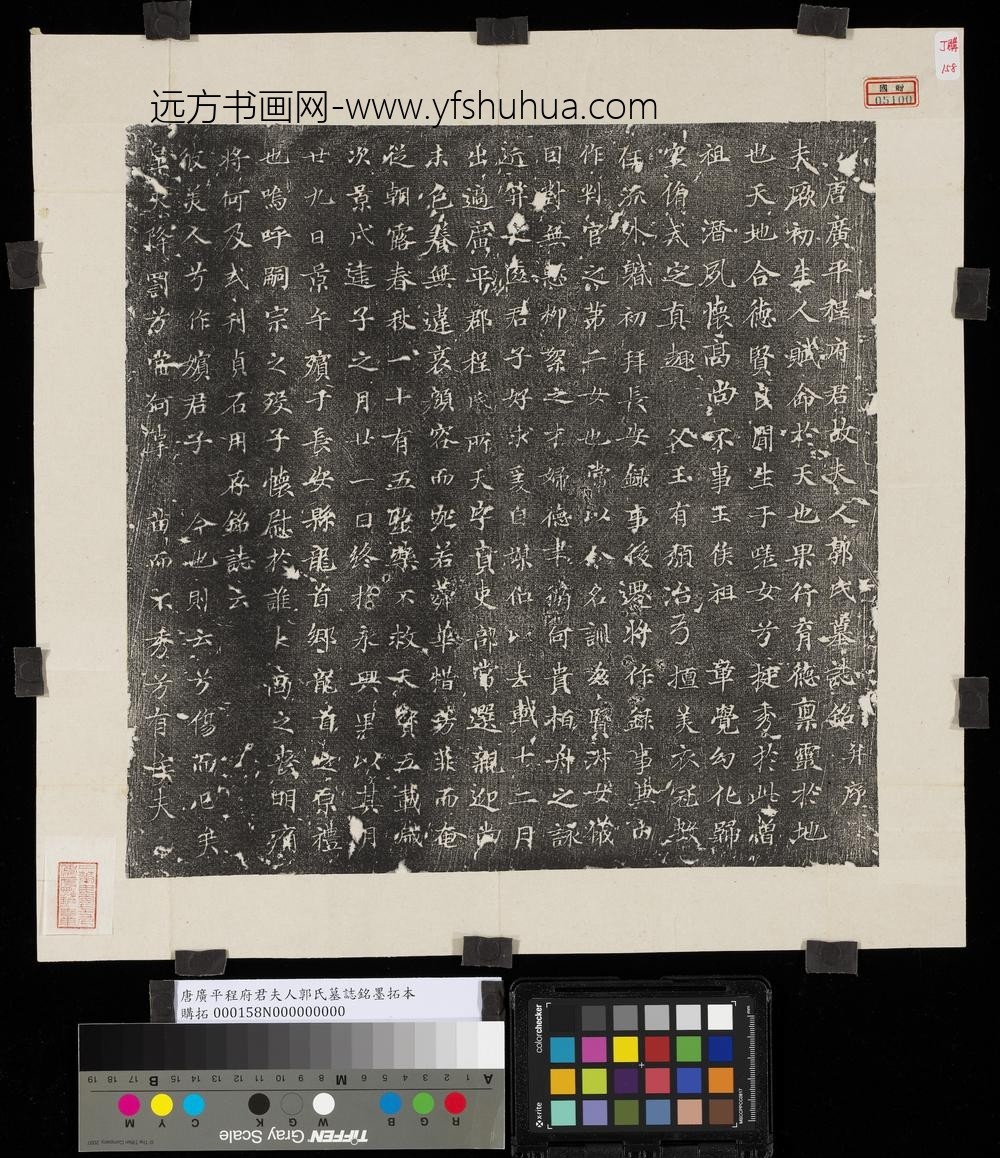 丁購
158
國財
05100
远方书画网-www.yfshuhua.com
唐廣平程府君故夫人郭氏墓誌銘并序
夫厥初生人賦命於天也果行育德稟靈於地
也天地合德賢良間生于嗟女兮挺秀於此曾
祖潛夙懷高尚不事王侯祖章覺幻化歸
空脩玄之真趣父玉有頹冶弓擅美衣冠
任流外職初拜長安錄事後遷將作錄事典
作判官之第二女也嘗以令名訓 賢淑女儀
日對無 柳絮之才婦德 何貴柏舟之詠
近笄 君子好求爰自 以去載十二月
出適廣平郡程 所天字 吏部常選親迎尚
未色養無違哀顏容而 若蕣華惜芳菲而奄
從朝露春秋一十有五 藥不救天寶五載歲
次景戌建子之月廿一日終於永興里以其月
廿九日景午殯于長安縣龍首鄉龍首之原禮
也嗚呼嗣宗之歿子懷慰於誰卜商之喪明痛
將何及式刊貞石用存銘誌云
彼美人兮作嬪君子今也則云兮傷而已矣
天降罰兮當何 苗而不秀兮有 夫
唐廣平程府君夫人郭氏墓誌銘墨拓本
購拓 000158N000000000
19 18 17 16 15 14 13 12 11 10 9 8 7 6 5 4 3 2 1
B M A
M Y C K G W B G R
TIFFEN Gray Scale
© The Tiffen Company, 2007
colorchecker
x-rite